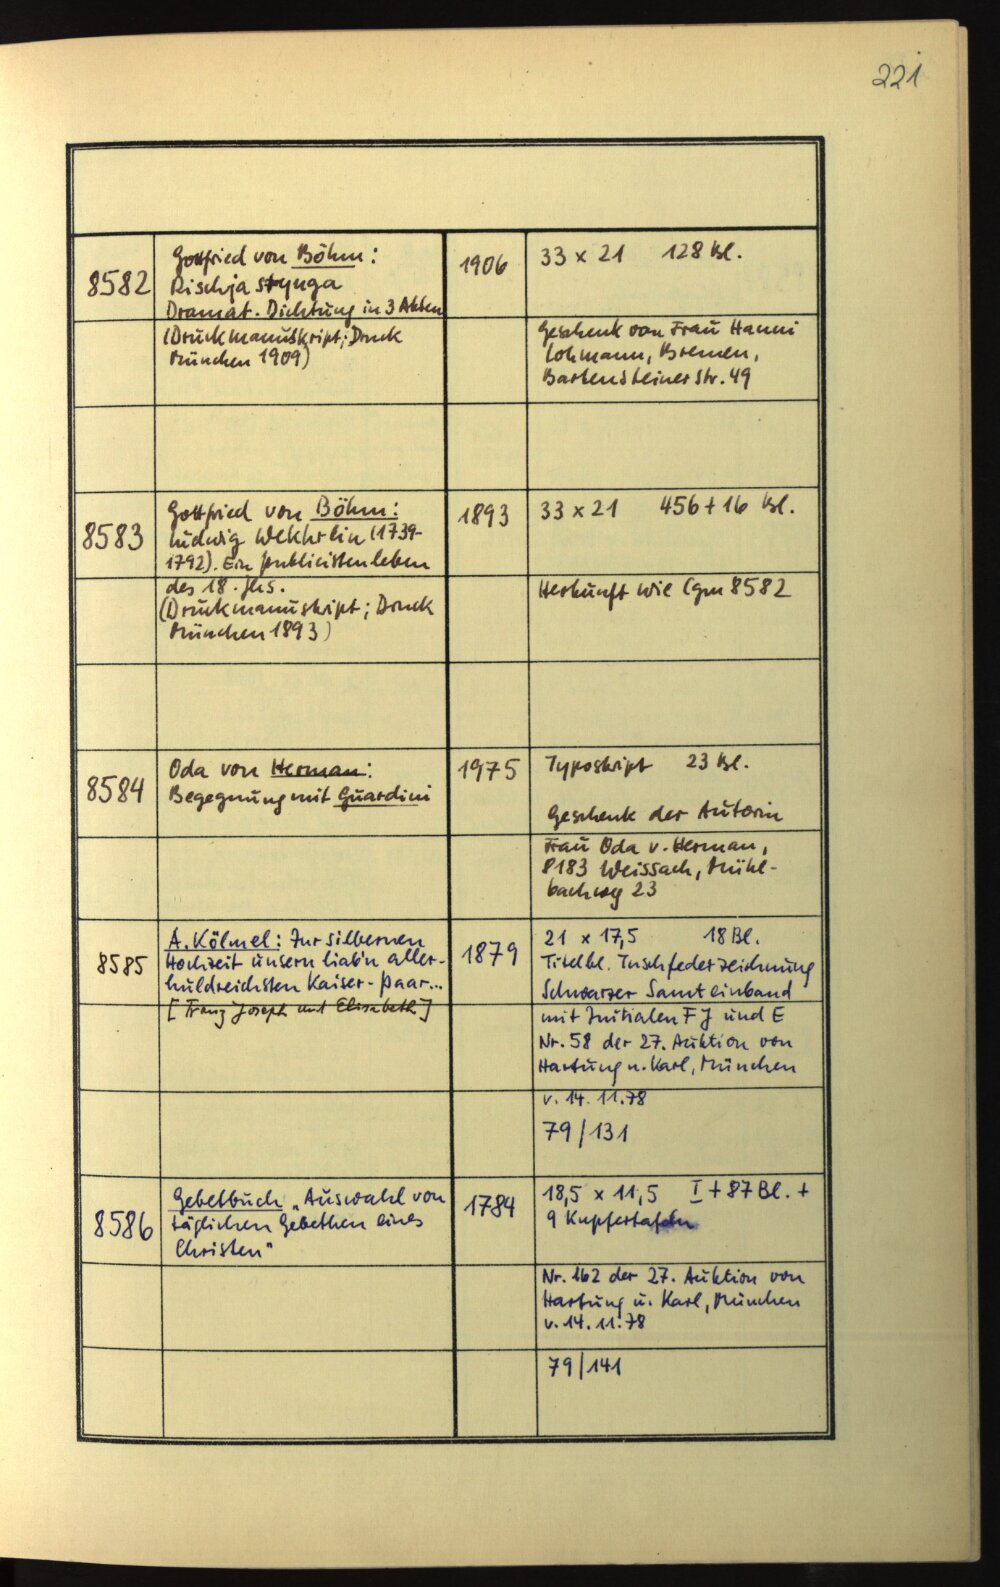 221
8582
Gottfried von Böhm:
Rischja stynga
Dramat. Dichtung in 3 Akten
(Druckmanuskript; Druck
München 1909)
1906
33 x 21 128 Bl.
Geschenk von Frau Hanni
Lohmann, Bremen,
Bartensteiner Str. 49
8583
Gottfried von Böhm:
Ludwig Wekhrlin (1739-
1792). Ein Publicistenleben
des 18. Jhs.
(Druckmanuskript; Druck
München 1893)
1893
33 x 21 456 + 16 Bl.
Herkunft wie Cgm 8582
8584
Oda von Herman:
Begegnung mit Guardini
1975
Typoskript 23 Bl.
Geschenk der Autorin
Frau Oda v. Herman,
8183 Weissach, Mühl-
bachweg 23
8585
A. Kölmel: Zur silbernen
Hochzeit unsern liab'n aller-
huldreichsten Kaiser-Paar...
[Franz Joseph und Elisabeth]
1879
21 x 17,5 18 Bl.
Titelbl. Tuschfederzeichnung
Schwarzer Samteinband
mit Initialen FJ und E
Nr. 58 der 27. Auktion von
Hartung u. Karl, München
v. 14. 11. 78
79/131
8586
Gebetbuch „Auswahl von
täglichen Gebethen eines
Christen"
1784
18,5 x 11,5 I + 87 Bl. +
9 Kupfertafeln
Nr. 162 der 27. Auktion von
Hartung u. Karl, München
v. 14. 11. 78
79/141